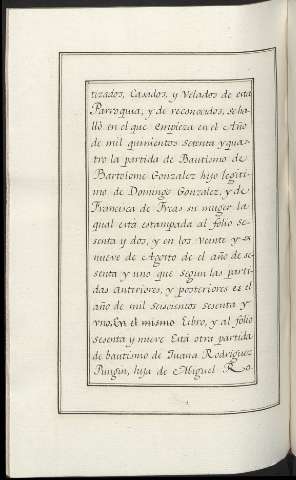 tizados, Casados, y Velados de esta
Parroquia, y de reconocidos, se ha-
lló en el que empieza en el Año
de mil quinientos setenta y qua-
tro la partida de Bautismo de
Bartolome Gonzalez hijo legiti-
mo de Domingo Gonzalez, y de
Francisca de Freas su muger la
qual está estampada al folio se-
senta y dos, y en los Veinte y
nueve de Agosto de el año de se-
senta y uno que segun las parti-
das anteriores, y posteriores es el
año de mil seiscientos sesenta y
vno. En el mismo Libro, y al folio
sesenta y nueve Está otra partida
de bautismo de Juana Rodriguez
Pungin, hija de Miguel Ro-